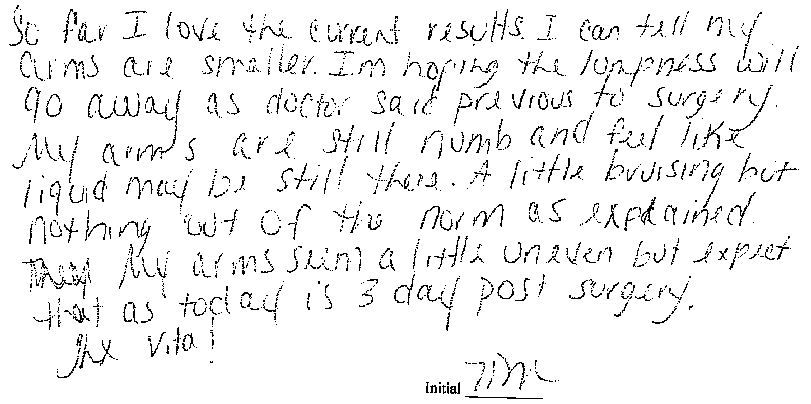 So far I love the current results. I can tell my
arms are smaller. I'm hoping the lumpness will
go away as doctor said previous to surgery.
My arms are still numb and feel like
liquid may be still there. A little bruising but
nothing out of the norm as explained.
My arms seem a little uneven but expect
that as today is 3 day post surgery.
Thx Vita!
Initial